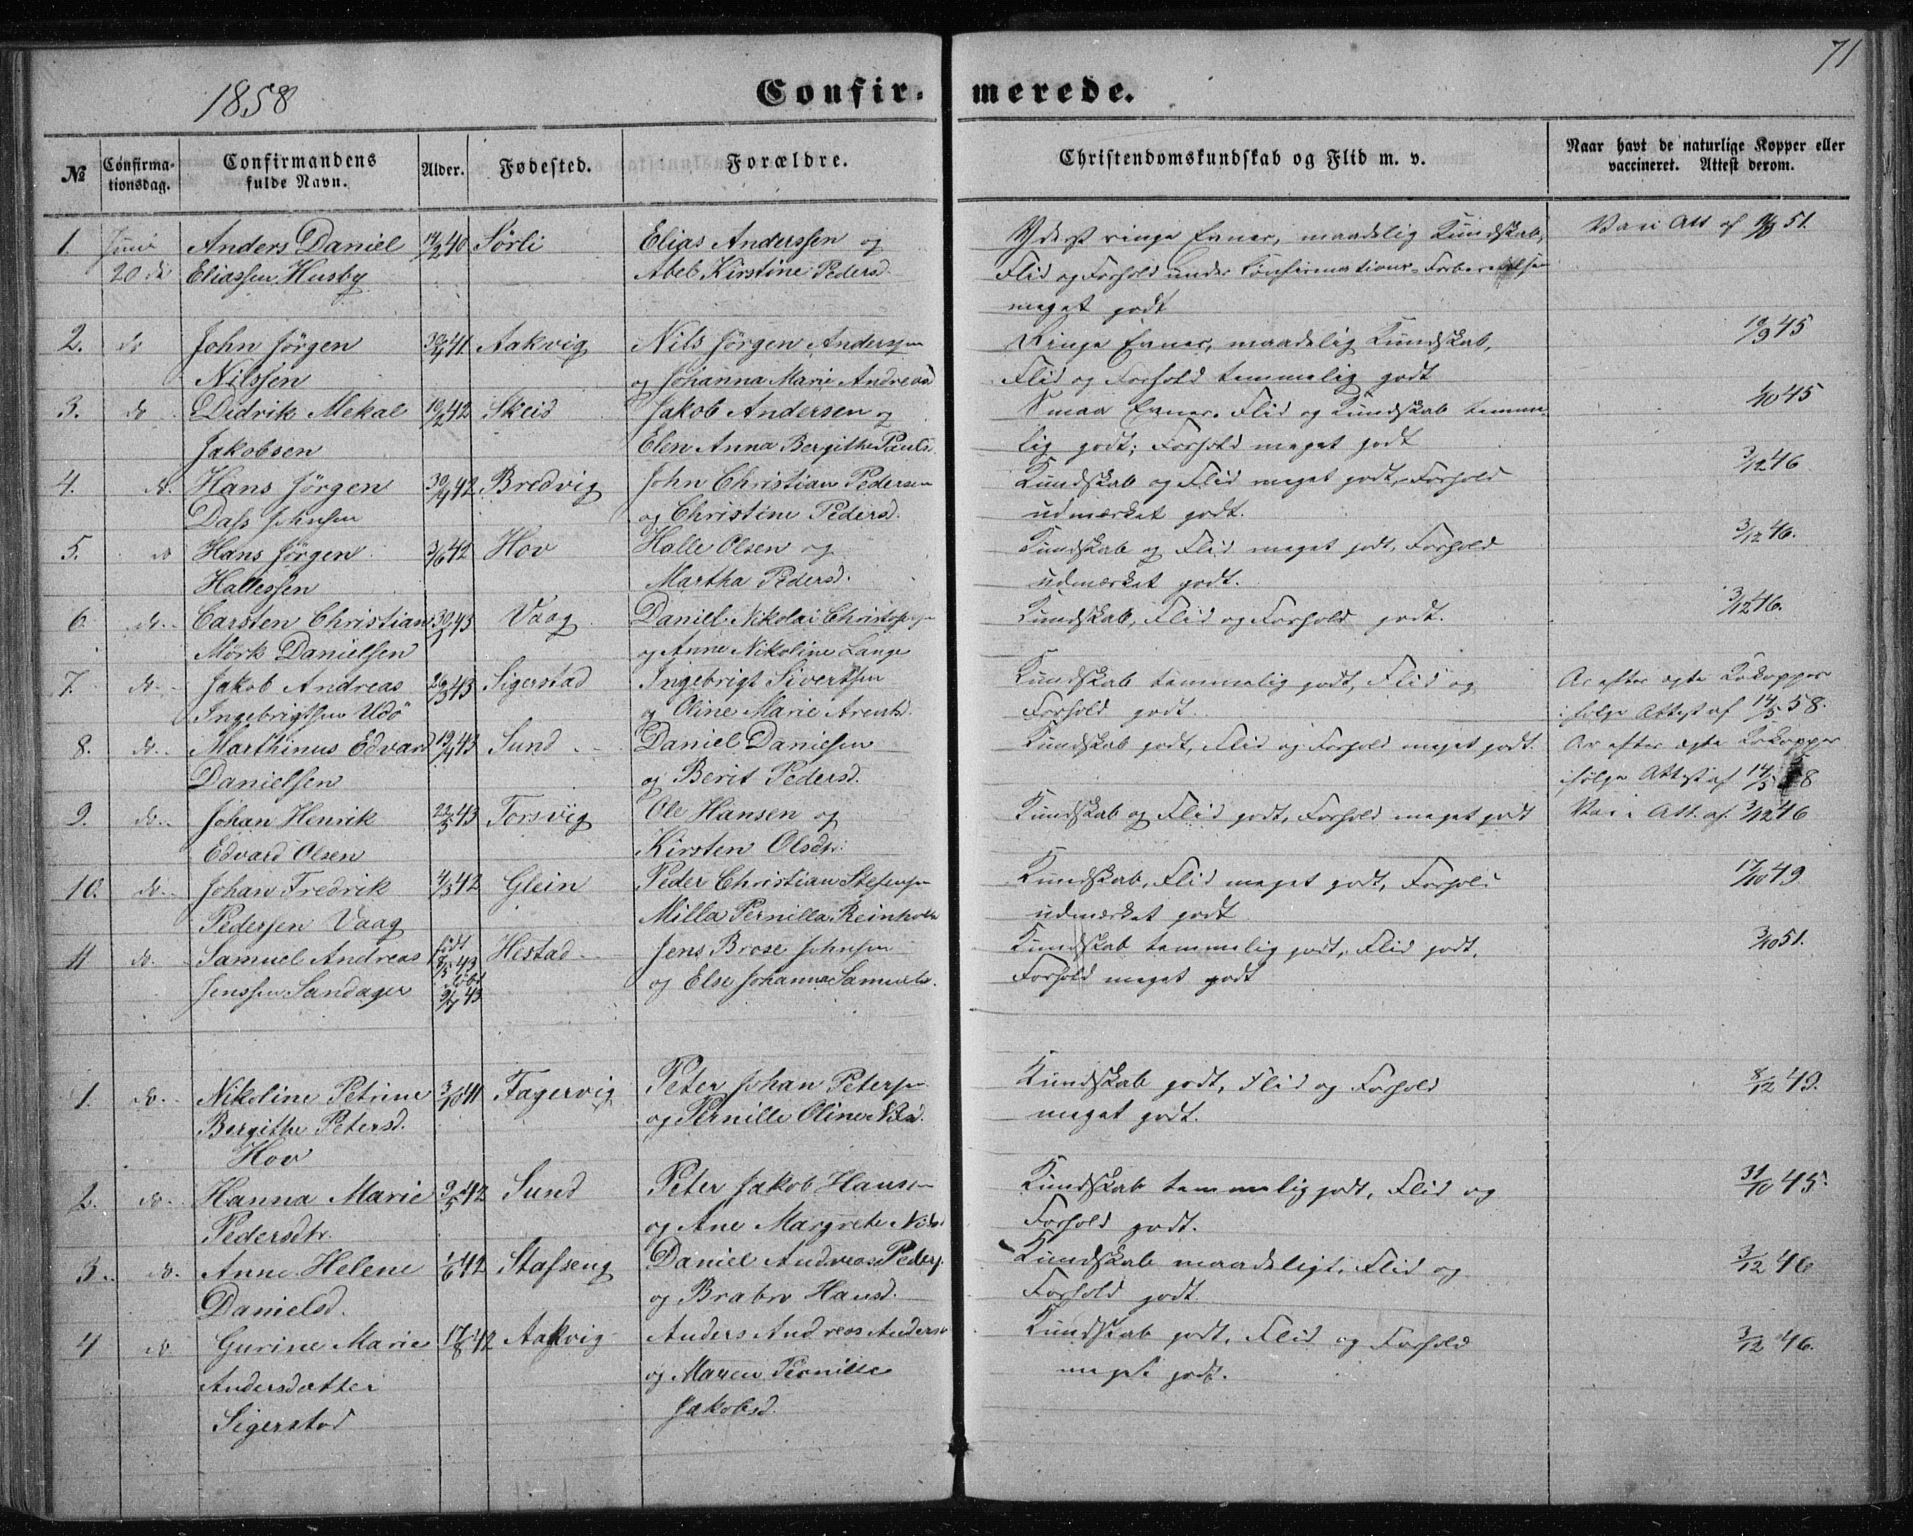 71
1858
Confir- merede.
№ Confirma- Confirmandens Alder. Fødested. Forældre. Christendomskundskab og Flid m. v. Naar havt de naturlige Kopper eller
tionsdag. fulde Navn. vaccineret. Attest derom.
1. Juni Anders Daniel 14/2 40 Sørli Elias Anderssen og Yderst ringe Evner, maadelig Kundskab, Vac i Att af 51.
20de Eliassen Husby Abel Kirstine Pedersd. Flid og Forhold under Confirmations-Forberedelsen
meget godt
2. do John Jörgen 41 Aakvig Nils Jörgen Anderssen Ringe Evner, maadelig Kundskab, 10/9 45
Nilssen og Johanna Marie Andreasd Flid og Forhold temmelig godt
3. do Didrik Mekal 10/2 42 Skeid Jakob Andersen og Smaa Evner. Flid og Kundskab temme- 1/10 45
Jakobsen Elen Anna Bergithe Pauls. lig godt; Forhold meget godt
4. do. Hans Jörgen 42 Bredvig John Christian Pedersen Kundskab og Flid meget godt, Forhold 3/12 46
Dass Johnsen og Christine Pedersd. udmærket godt.
5. do Hans Jörgen 3/6 42 Hov Halle Olsen og Kundskab og Flid meget godt, Forhold 3/12 46.
Hallessen Martha Pedersd. udmærket godt.
6. do. Carsten Christian 43 Vaag Daniel Nikolai Christophersen Kundskab, Flid og Forhold godt. 3/12 46.
Mörk Danielsen og Anne Nikoline Lange
7. do. Jakob Andreas 26/3 43 Sigerstad Ingebrigt Sivertsen Kundskab temmelig godt, Flid og Ar efter ægte Kokopper
Ingebrigtsen Udö og Oline Marie Arentsd. Forhold godt. ifølge Attest af 14/5 58.
8. do. Marthinus Edvard 43 Sund Daniel Danielsen Kundskab godt, Flid og Forhold meget godt. Ar efter ægte Kokopper
Danielsen og Berit Pedersd. ifølge Attest af 14/5 58
9. do. Johan Henrik 22/5 43 Forsvig Ole Hansen og Kundskab og Flid godt, Forhold meget godt Vac i Att. af 3/12 46
Edvard Olsen Kirsten Olsdtr.
10. do. Johan Fredrik 4/3 42 Glein Peder Christian Stefensen Kundskab, Flid meget godt, Forhold 17/10 49
Pedersen Vaag Milla Pernilla Reinholds udmærket godt
11 do. Samuel Andreas født 43 Hestad Jens Brose Johnsen Kundskab temmelig godt, Flid godt, 3/10 51.
Jenssen Sandager døbt 43 og Else Johanna Samuelsd. Forhold meget godt
1. do. Nikoline Petrine 3/10 41 Fagervig Peter Johan Petersen Kundskab godt, Flid og Forhold 8/12 49.
Bergithe Petersd. og Pernille Oline Nilsd. meget godt.
Hov
2. do. Hanna Marie 9/5 42 Sund Peter Jakob Hansen Kundskab temmelig godt, Flid og 31/10 45.
Pedersdtr. og Ane Margrete Nilsd Forhold godt.
3. do. Anne Helene 1/6 42 Stafseng Daniel Andreas Peders. Kundskab maadeligt, Flid og 3/12 46
Danielsd. og Brabro Hansd. Forhold godt.
4 do Gurine Marie 17/8 42 Aakvig Anders Andreas Anders Kundskab godt, Flid og Forhold 3/12 46.
Andersdatter og Maren Pernille meget godt.
Sigerstad Jakobsd.